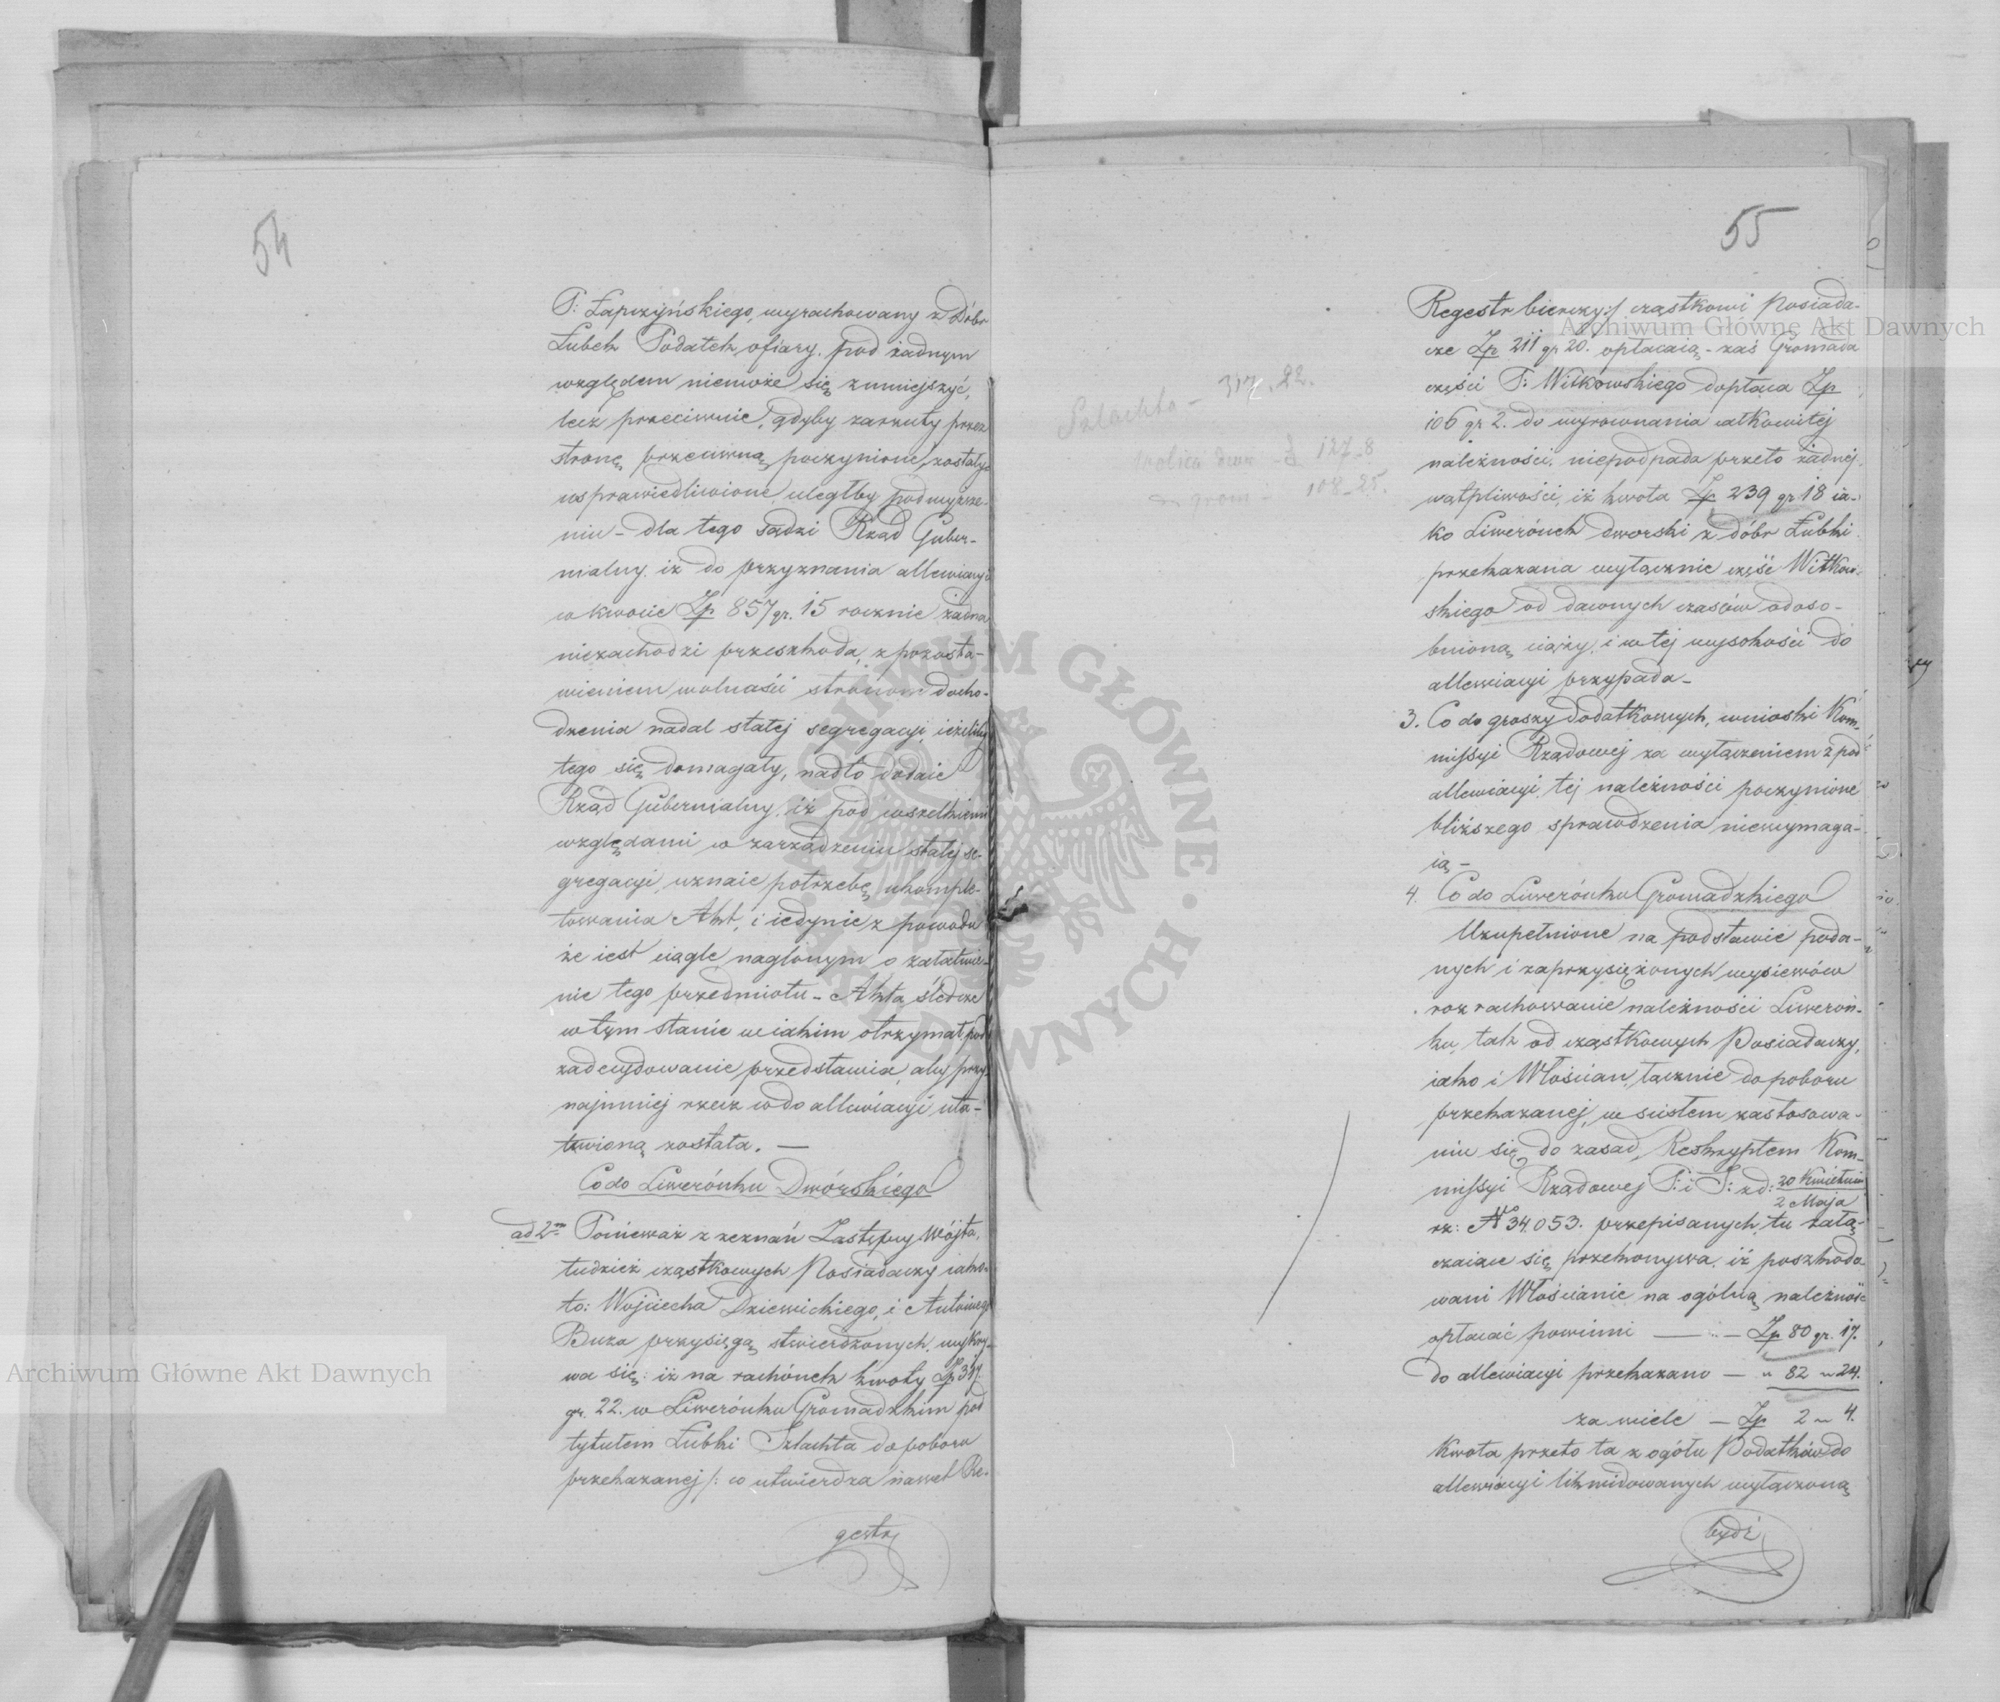 54
P: Łapczyńskiego, wyrachowany z Dóbr
Łubek Podatek ofiary, pod żadnym
względem niemoże się zmniejszyć,
lecz przeciwnie, gdyby zarzuty przez
stronę przeciwną poczynione, zostały
usprawiedliwione uległby podwyższe-
niu – dla tego sądzi Rząd Guber-
nialny iż do przyznania allewiacyi
w kwocie Zp 857 gr. 15 rocznie żadna
niezachodzi przeszkoda, z pozosta-
wieniem wolności stronom docho-
dzenia nadal stałej segregacyi, ieżeliby
tego się domagały, nadto dodaie
Rząd Gubernialny, iż pod wszelkiemi
względami w zarządzeniu stałej se-
gregacyi, uznaie potrzebę ukomple-
towania Akt, i iedynie z powodu
że iest ciągle naglonym o załatwie-
nie tego przedmiotu – Akta śledcze
w tym stanie w iakim otrzymał pod
zadecydowanie przedstawia, aby przy-
najmniej rzecz co do allewiacyi uła-
twioną została. —
Co do Liwerónku Dwórskiego
ad 2m Ponieważ z zeznań Zastępcy Wójta,
tudzież cząstkowych Posiadaczy iako-
to: Wojciecha Dziewickiego, i Antoniego
Buza przysięgą stwierdzonych, wykry-
wa się: iż na rachónek kwoty Zp 317.
gr. 22. w Liwerónku Gromadzkim pod
tytułem Łubki Szlachta do poboru
przekazanej /: co utwierdza nawet Re-
gestr
55
Szlachta – 317. 22.
127 – 8
grom – 108 – 25.
Regestr bierczy :/ cząstkowi Posiada-
cze Zp 211 gr 20. opłacaią – zaś Gromada
części P: Witkowskiego dopłaca Zp
106 gr 2. do wyrownania całkowitej
należności, niepodpada przeto żadnej
wątpliwości, iż kwota Zp 239 gr 18 ia-
ko Liwerónek dworski z dóbr Łubki
przekazana wyłącznie część Witkow-
skiego od dawnych czasów odoso-
bnioną ciąży, i w tej wysokości do
allewiacyi przypada –
3. Co do groszy dodatkowych, wnioski Kom-
missyi Rządowej za wyłączeniem z pod
allewiacyi, tej należności poczynione
bliższego sprawdzenia niewymaga-
ią –
4. Co do Liwerónku Gromadzkiego
Uzupełnione na podstawie poda-
nych i zaprzysiężonych wysiewów
rozrachowanie należności Liwerón-
ku, tak od cząstkowych Posiadaczy,
iako i Włościan, łącznie do poboru
przekazanej, w ścisłem zastosowa-
niu się do zasad, Reskryptem Kom-
missyi Rządowej P: i S: z d: 20 Kwietnia
2 Maja
rz: N 34.053. przepisanych, tu załą-
czaiąc się przekonywa, iż poszkodo-
wani Włościanie na ogólną należność
opłacać powinni — " — Zp 80 gr. 17.
do allewiacyi przekazano — " 82 " 21.
za wiele — Zp 2 " 4.
Kwota przeto ta z ogółu Podatków do
allewiacyi likwidowanych wyłączoną
bydź
Archiwum Główne Akt Dawnych
Archiwum Główne Akt Dawnych
ARCHIWUM GŁÓWNE AKT DAWNYCH